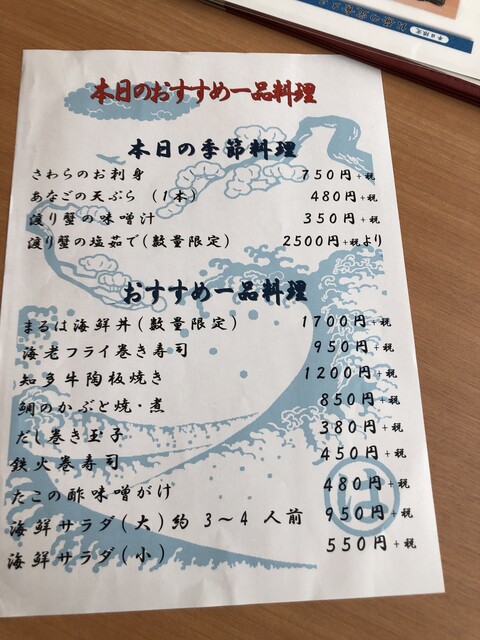 本日のおすすめ一品料理
本日の季節料理
さわらのお刺身 750円+税
あなごの天ぷら (1本) 480円+税
渡り蟹の味噌汁 350円+税
渡り蟹の塩茹で(数量限定) 2500円+税より
おすすめ一品料理
まるは海鮮丼(数量限定) 1700円+税
海老フライ巻き寿司 950円+税
知多牛陶板焼き 1200円+税
鯛のかぶと焼・煮 850円+税
だし巻き玉子 380円+税
鉄火巻寿司 450円+税
たこの酢味噌がけ 480円+税
海鮮サラダ(大)約 3~4 人前 950円+税
海鮮サラダ(小) 550円+税
は